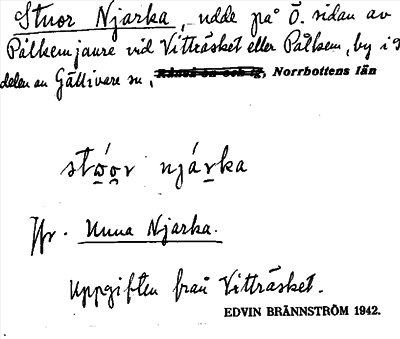 Stuor Njarka, udde på Ö. sidan av
Pålkemjaure vid Vitträsket eller Pålkem, by i S
delen av Gällivare sn, Norrbottens län
stɷ́o̯r njárka
Jfr. Unna Njarka.
Uppgiften från Vitträsket.
EDVIN BRÄNNSTRÖM 1942.